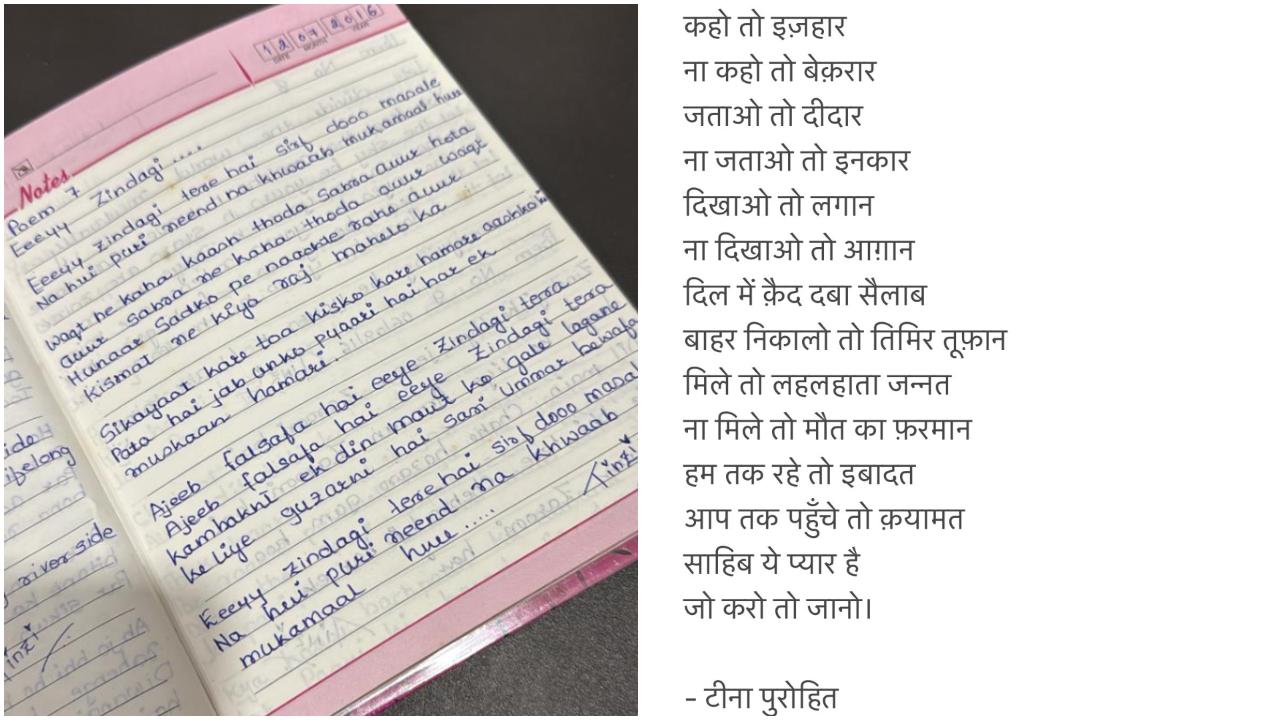 12 07 2016
DATE MONTH YEAR
Notes
Poem 7
Eeeyy Zindagi ....
Eeeyy zindagi tere hai sirf dooo masale
Na hui puri neend na khwaab mukamaal huee
Waqt ne kaha kaash thoda Sabra auur hota
auur Sabra ne kaha thoda auur waqt
Hunaar Sadko pe naachte rahe auur
Kismat ne kiya raj mahelo ka
Sikayaat kare toa kisko kare hamare aashko ki
Pata hai jab unko pyaari hai har ek
muskaan hamari.
Ajeeb falsafa hai eeye Zindagi tera
Ajeeb falsafa hai eeye Zindagi tera
kambakht ek din maut ko gale lagane
ke liye guzarni hai sari Ummar bewafa
Eeeyy zindagi tere hai sirf dooo masal
Na hui puri neend na khwaab
mukamaal huee .....
Tinzi
ifelong
river side
inzi
कहो तो इज़हार
ना कहो तो बेक़रार
जताओ तो दीदार
ना जताओ तो इनकार
दिखाओ तो लगान
ना दिखाओ तो आग़ान
दिल में क़ैद दबा सैलाब
बाहर निकालो तो तिमिर तूफ़ान
मिले तो लहलहाता जन्नत
ना मिले तो मौत का फ़रमान
हम तक रहे तो इबादत
आप तक पहुँचे तो क़यामत
साहिब ये प्यार है
जो करो तो जानो।
- टीना पुरोहित